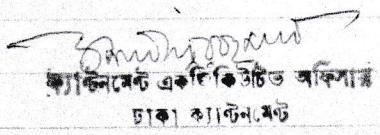 ক্যান্টনমেন্ট একজিকিউটিভ অফিসার
ঢাকা ক্যান্টনমেন্ট